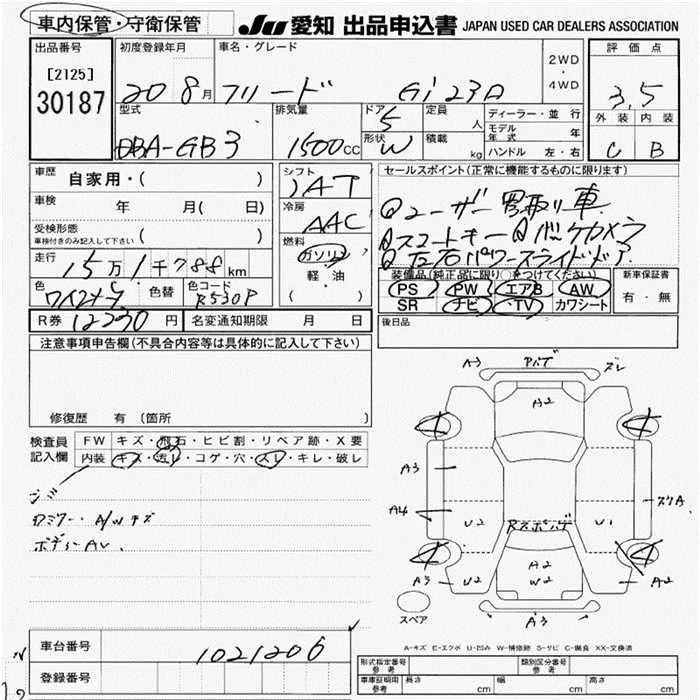 車内保管・守衛保管
JU 愛知 出品申込書 JAPAN USED CAR DEALERS ASSOCIATION
出品番号
[2125]
30187
初度登録年月
20 8月
車名・グレード
フリード Gi エアロ
2WD
・
4WD
評価点
3.5
外装 内装
C B
型式
DBA-GB3
排気量
1500cc
ドア
5
形状
W
定員
人
積載
kg
ディーラー・並行
モデル年式 年
ハンドル 左・右
車歴
自家用・( )
車検 年 月( 日)
受検形態
車検付きのみ記入して下さい ( )
走行
15万1千788km
色
ワインメタ
色替
色コード
R530P
シフト
IAT
冷房
AAC
燃料
ガソリン
・
軽・油
・
( )
R券 12230円
名変通知期限 月 日
セールスポイント(正常に機能するものに限ります)
①ユーザー買取り車
②スマートキー ③バックカメラ
④左右パワースライドドア
装備品(純正品に限り○をつけてください)
PS PW エアB AW
SR ナビ ・TV カワシート
新車保証書
有・無
後日品
注意事項申告欄(不具合内容等は具体的に記入して下さい)
修復歴 有 〔箇所 〕
検査員記入欄
FW キズ・飛石・ヒビ割・リペア跡・X要
内装 キズ・汚レ・コゲ・穴・スレ・キレ・破レ
A/Wキズ
ボディーAU
A3 アバゲ ズレ
A2
A3
A4
U2
Rスポバゲ
U1
スリA
A3
U2
A2
W2
A2
A3
スペア
A-キズ E-エクボ U-凹み W-補修跡 S-サビ C-腐食 XX-交換済
車台番号 1021206
登録番号
形式指定番号 参考
類別区分番号 参考
車庫証明用 参考 長さ cm 幅 cm 高さ cm